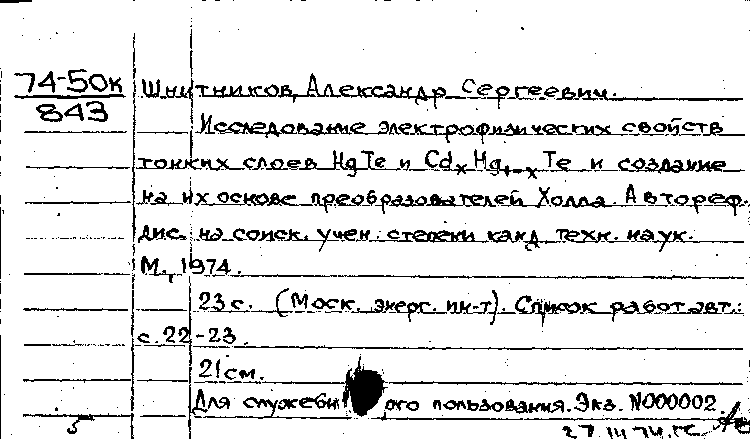 74-50к
843
Шнитников, Александр Сергеевич.
Исследование электрофизических свойств
тонких слоев HgTe и CdxHg1-xTe и создание
на их основе преобразователей Холла. Автореф.
дис. на соиск. учен. степени канд. техн. наук.
М., 1974.
23 с. (Моск. энерг. ин-т). Список работ авт.:
с. 22-23.
21 см.
Для служебн ого пользования. Экз. N000002.
5